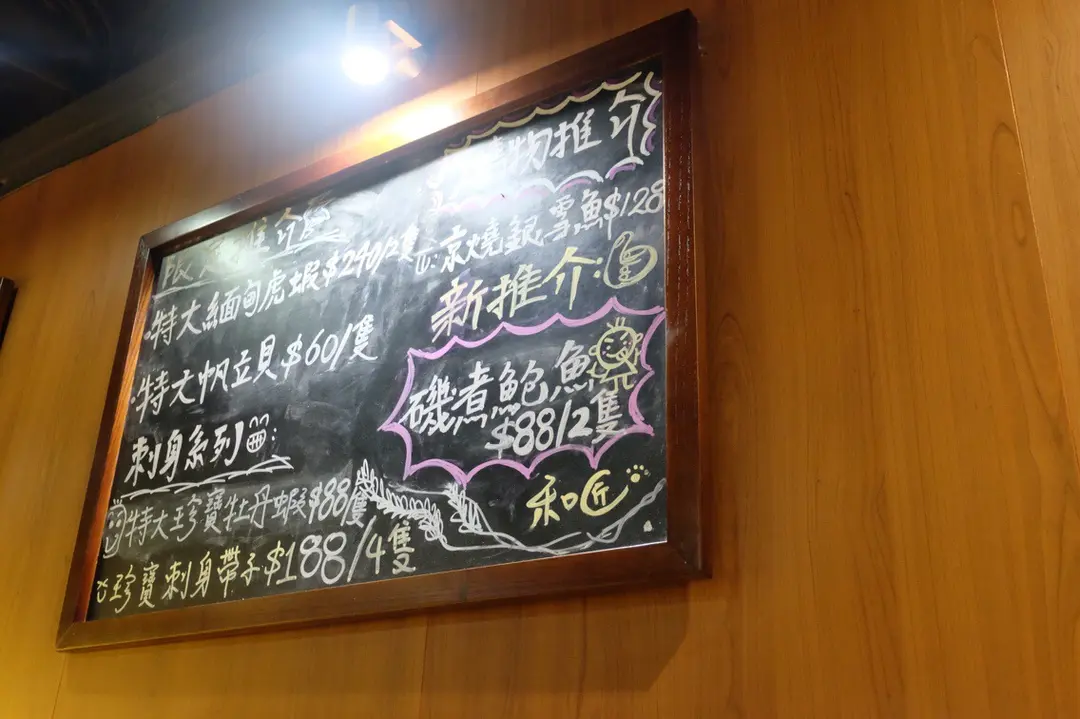 推介
特大緬甸虎蝦$240/2隻
特大帆立貝$60/隻
刺身系列:
特大珍寶牡丹蝦$88/隻
珍寶刺身帶子$188/4隻
物推介
京燒銀雪魚$128
新推介:
磯煮鮑魚
$88/2隻
和匠